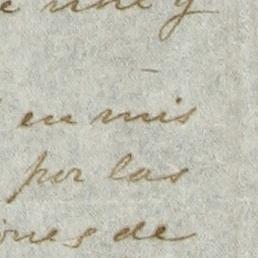 y
en mis
por las
ones de